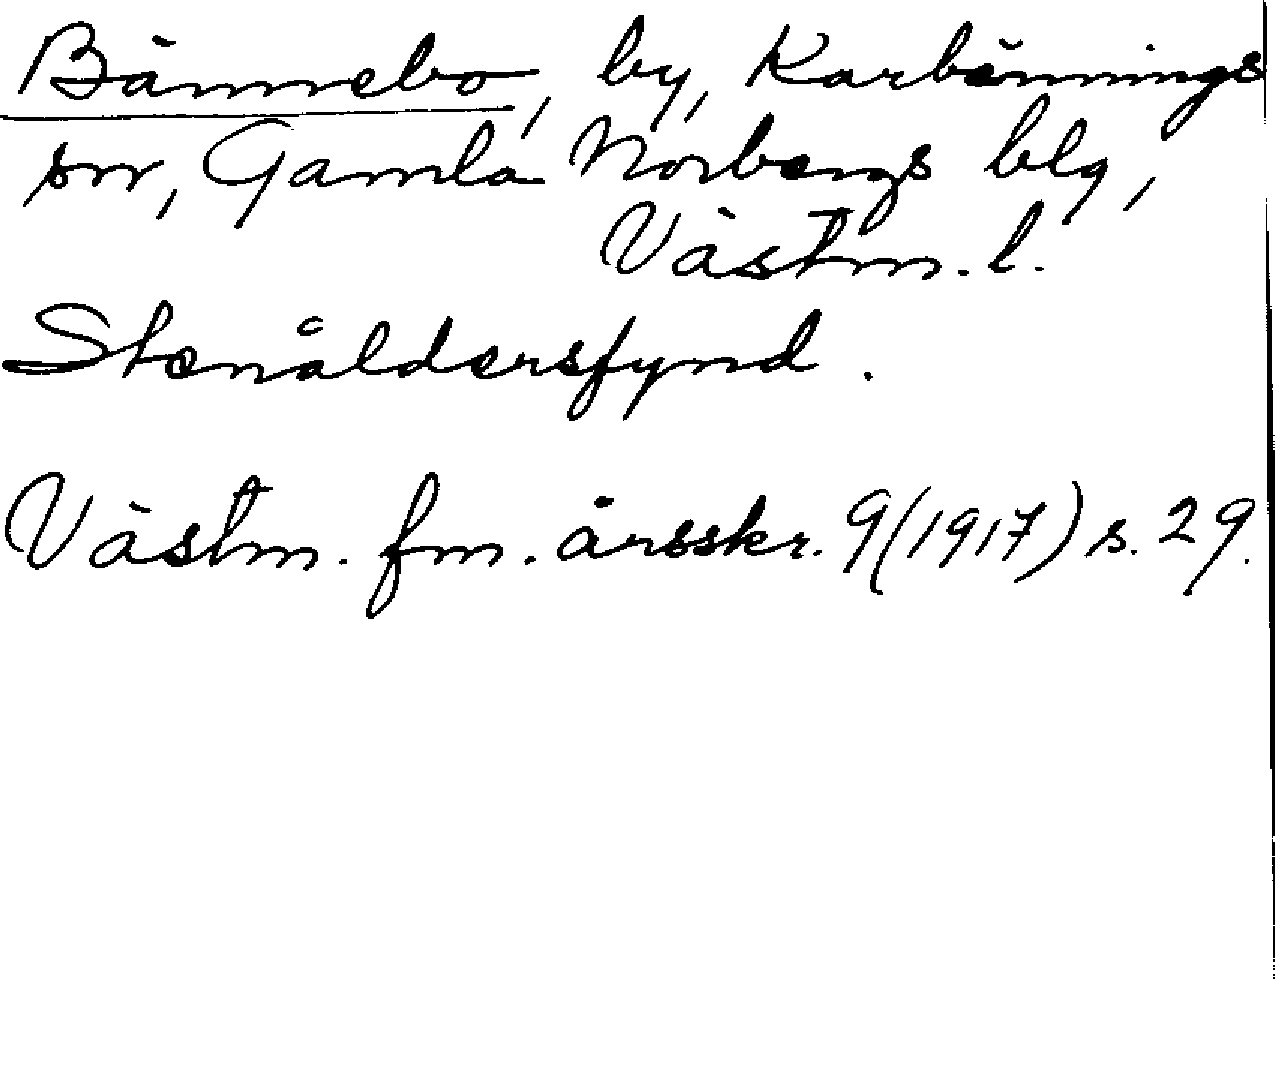 Bännebo, by, Karbennings
sn, Gamla Norbergs blg,
Västm. l.
Stenåldersfynd.
Västm. fm. årsskr. 9(1917) s. 29.